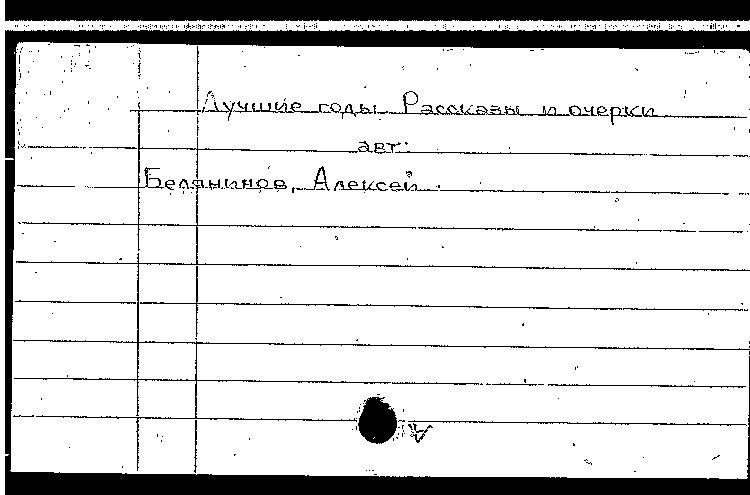 Лучшие годы Рассказы и очерки
авт:
Белянинов, Алексей.